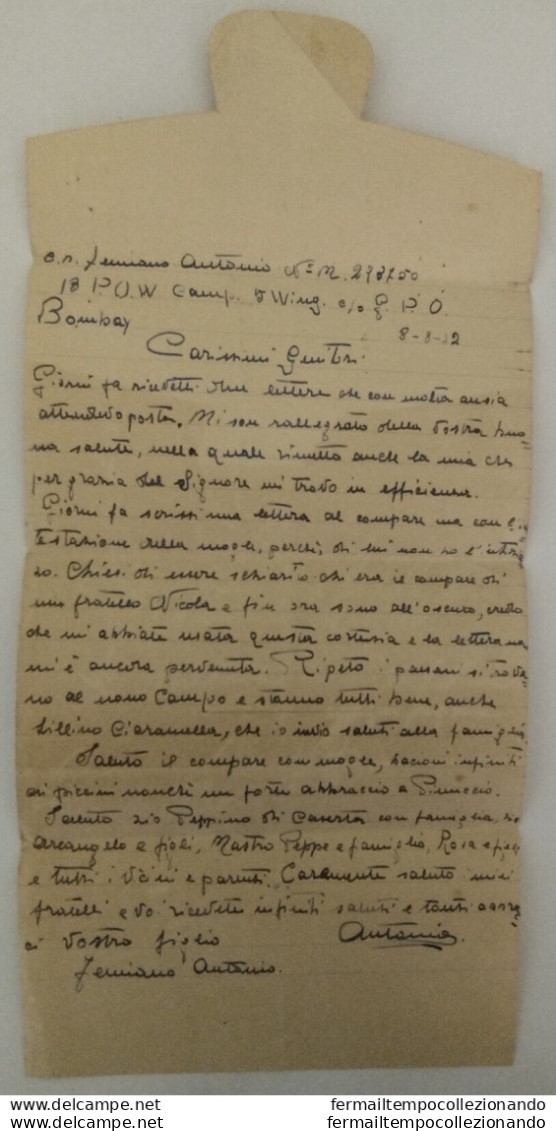 Antonio N° M. 278750
18 P.O.W Camp. 5 Wing. c/o G. P. O
Bombay
8-8-42
Carissimi Genitori.
Giorni fa ricevetti due lettere che con molta ansia
attendevo posta. Mi son rallegrato della vostra buo=
na salute, nella quale rimetto anche la mia che
per grazia del Signore mi trovo in efficienza.
Giorni fa scrissi una lettera al compare ma con l'in
testazione della moglie, perchè, di lui non so l'intesta
Chiesi di essere schiarito chi era il compare di
mio fratello Nicola e fin ora sono all'oscuro, credo
che mi abbiate usata questa cortesia e la lettera non
mi è ancora pervenuta. Ripeto i paesani si trova
no al nono Campo e stanno tutti bene, anche
Lillino Ciaramella, che io invio saluti alla famiglia
Saluto il compare con moglie, bacioni infiniti
ai piccini nonchè un forte abbraccio a Pinuccio.
Saluto zio Peppino di Caserta con famiglia, zio
Arcangelo e figli, Mastro Peppe e famiglia, Rosa e figli
e tutti i vicini e parenti. Caramente saluto i miei
fratelli e voi ricevete infiniti saluti e tanti abbra=
ci Vostro figlio Antonio
Antonio.
fermailtempocollezionando.com
fermailtempocollezionando.com
fermailtempocollezionando
fermailtempocollezionando